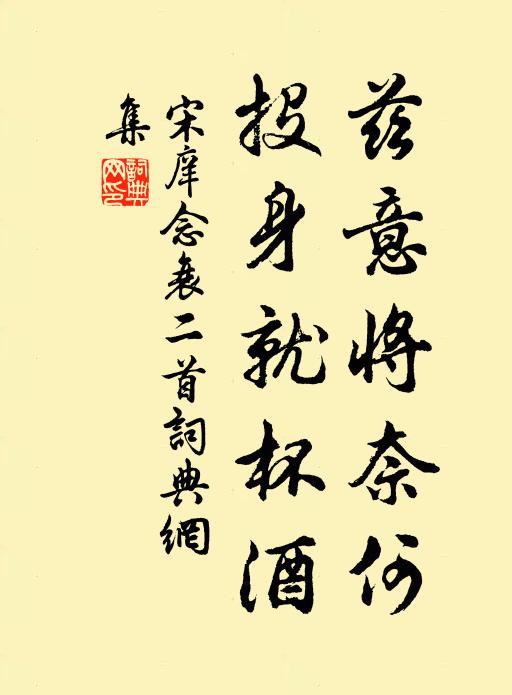 茲意將奈何
投身就杯酒
宋庠念衰二首詞典網
集
詞典
网印